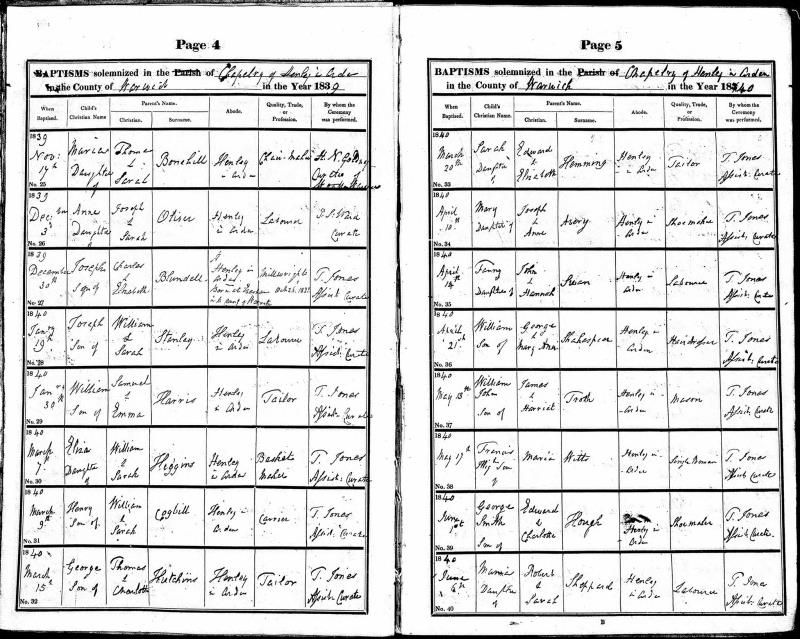 Page 4
BAPTISMS solemnized in the Parish of Chapelry of Henley in Arden
in the County of Warwick in the Year 1839
When Baptized. Child's Christian Name. Parent's Name. Christian. Surname. Abode. Quality, Trade, or Profession. By whom the Ceremony was performed.
1839 Nov: 17th No. 25 Maria Daughter of Thomas & Sarah Bonehill Henley in Arden Chair-Maker H. N.
1839 Dec: 3rd No. 26 Anne Daughter of Joseph & Sarah Henley in Arden Labourer Ward Curate
1839 December 30th No. 27 Joseph Son of Charles & Elizabeth Blundell Henley in Arden Born at Millwright Oct 26. T. Jones Assist: Curate
1840 Jany 19th No. 28 Joseph Son of William & Sarah Stanley Henley in Arden Labourer T. Jones Assist: Curate
1840 Jany 30th No. 29 William Son of Samuel & Emma Harris Henley in Arden Tailor T. Jones Assist: Curate
1840 March 7th No. 30 Eliza Daughter of William & Sarah Higgins Henley in Arden Basket Maker T. Jones Assist: Curate
1840 March 9th No. 31 Henry Son of William & Sarah Cogbill Henley in Arden Carrier T. Jones Assist: Curate
1840 March 15th No. 32 George Son of Thomas & Charlotte Hutchins Henley in Arden Tailor T. Jones Assist: Curate
Page 5
BAPTISMS solemnized in the Parish of Chapelry of Henley in Arden
in the County of Warwick in the Year 1840
When Baptized. Child's Christian Name. Parent's Name. Christian. Surname. Abode. Quality, Trade, or Profession. By whom the Ceremony was performed.
1840 March 20th No. 33 Sarah Daughter of Edward & Elizabeth Hemming Henley in Arden Tailor T. Jones Assist: Curate
1840 April 10th No. 34 Mary Daughter of Joseph & Anne Avery Henley in Arden Shoemaker T. Jones Assist: Curate
1840 April No. 35 Fanny Daughter of John & Hannah Swan Henley in Arden Labourer T. Jones Assist: Curate
1840 April 21st No. 36 William Son of George Mary Ann Shakespear Henley in Arden Hair dresser T. Jones Assist: Curate
1840 May 13th No. 37 William John Son of James & Harriet Troth Henley in Arden Mason T. Jones Assist: Curate
1840 May 17th No. 38 Francis Son of Maria Witts Henley in Arden Single Woman T. Jones Assist: Curate
1840 June 1st No. 39 George Smith Son of Edward & Charlotte Hough Henley in Arden Shoemaker T. Jones Assist: Curate
1840 June No. 40 Daughter of Robert & Sarah Sheppard Henley in Arden Labourer T. Jones Assist: Curate
B